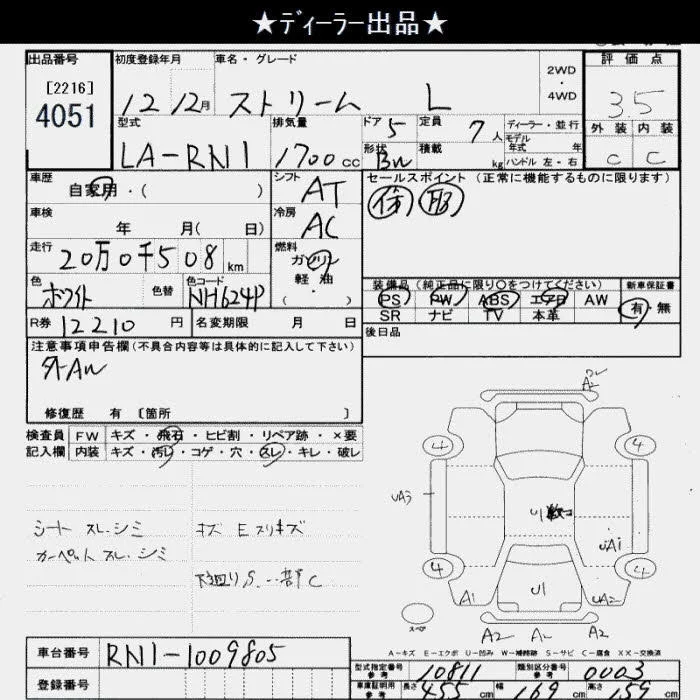 ★ディーラー出品★
出品番号 初度登録年月 車名・グレード 2WD・4WD 評価点
[2216]
4051
12年12月 ストリーム L 3.5
型式 排気量 ドア 5 定員 7人 ディーラー・並行 外装 内装
LA-RN1 1700cc 形状 積載 kg モデル年式 年 C C
ハンドル 左・右
車歴 自家用・( ) シフト AT セールスポイント (正常に機能するものに限ります)
車検 年 月( 日) 冷房 AC
走行 20万0千508km 燃料 ガソリン・軽油・( )
色 ホワイト 色替 色コード NH624P 装備品(純正品に限り○をつけてください) 新車保証書
PS PW ABS エアB AW 有・無
SR ナビ TV 本革
R券 12210円 名変期限 月 日 後日品
注意事項申告欄(不具合内容等は具体的に記入して下さい)
外AW
修復歴 有 [箇所 ]
検査員 FW キズ・飛石・ヒビ割・リペア跡・×要
記入欄 内装 キズ・汚レ・コゲ・穴・スレ・キレ・破レ
A2
4 4
UA3 U1
UA1
シート スレ シミ キズ Eスリキズ
カーペット スレ シミ
下廻りS
C
4 4
A1 U1 UA2
スペア
A2 A2
A-キズ E-エクボ U-凹み W-補修跡 S-サビ C-腐食 XX-交換済
車台番号 RN1-1009805
型式指定番号 参考 10811 類別区分番号 参考 0003
登録番号 車庫証明用 参考 長さ 455cm 幅 169cm 高さ 159cm